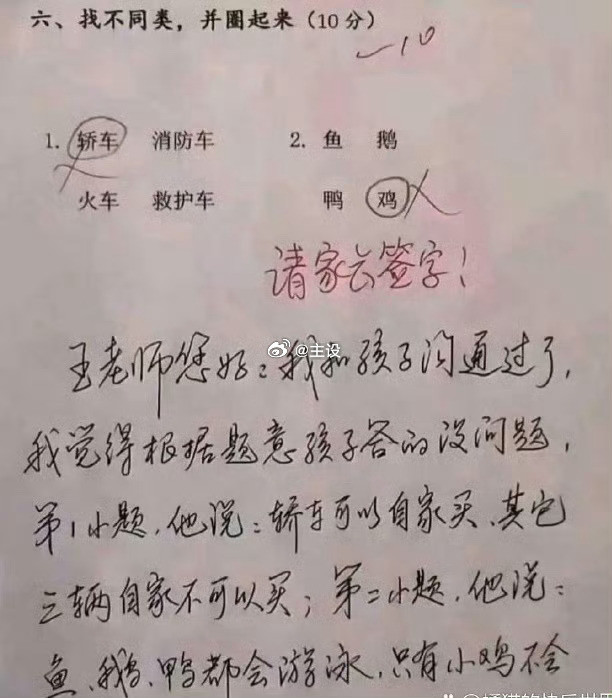 六、找不同类，并圈起来（10分）
-10
1. 轿车 消防车 2. 鱼 鹅
火车 救护车 鸭 鸡
请家长签字！
@主设
王老师您好：我和孩子沟通过了，
我觉得根据题意孩子答的没问题，
第1小题，他说：轿车可以自家买、其它
三辆自家不可以买；第二小题，他说：
鱼、鹅、鸭都会游泳，只有小鸡不会